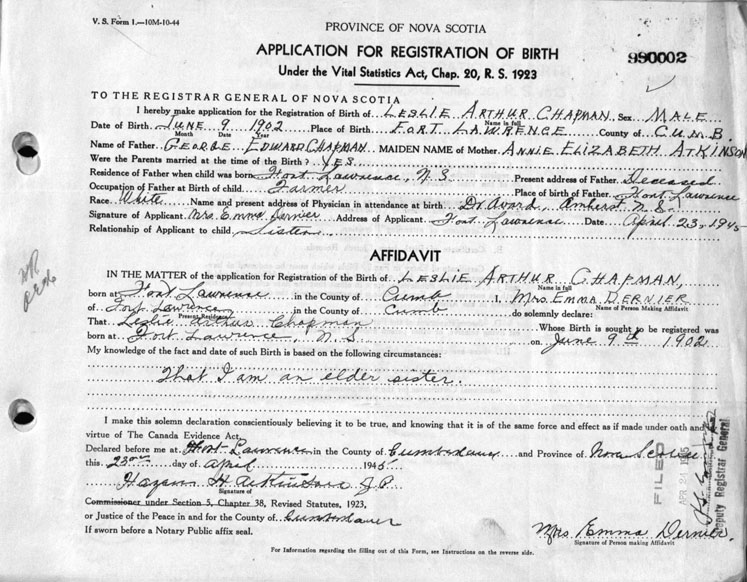 V. S. Form 1.—10M-10-44
PROVINCE OF NOVA SCOTIA
APPLICATION FOR REGISTRATION OF BIRTH
990002
Under the Vital Statistics Act, Chap. 20, R. S. 1923
TO THE REGISTRAR GENERAL OF NOVA SCOTIA
I hereby make application for the Registration of Birth of LESLIE ARTHUR CHAPMAN Sex MALE
Name in full
Date of Birth JUNE 9 1902 Place of Birth FORT LAWRENCE County of CUMB.
Month Date Year
Name of Father GEORGE EDWARD CHAPMAN MAIDEN NAME of Mother ANNIE ELIZABETH ATKINSON
Were the Parents married at the time of the Birth? YES
Residence of Father when child was born Fort Lawrence, N.S. Present address of Father Deceased
Occupation of Father at Birth of child Farmer Place of birth of Father Fort Lawrence
Race White Name and present address of Physician in attendance at birth Dr. Avard, Amherst N.S.
Signature of Applicant Mrs Emma Dernier Address of Applicant Fort Lawrence Date April 23, 1945
Relationship of Applicant to child Sister
AFFIDAVIT
IN THE MATTER of the application for Registration of the Birth of LESLIE ARTHUR CHAPMAN,
Name in full
born at Fort Lawrence in the County of Cumb I, Mrs EMMA DERNIER
Name of Person Making Affidavit
of Fort Lawrence in the County of Cumb do solemnly declare:
Present Residence
That Leslie Arthur Chapman Whose Birth is sought to be registered was
born at Fort Lawrence, N.S. on June 9th 1902
My knowledge of the fact and date of such Birth is based on the following circumstances:
That I am an elder sister.
I make this solemn declaration conscientiously believing it to be true, and knowing that it is of the same force and effect as if made under oath and
virtue of The Canada Evidence Act.
Declared before me at Fort Lawrence in the County of Cumberland and Province of Nova Scotia
this 23rd day of April 1945
H Atkinson J.P.
Signature of
Commissioner under Section 5, Chapter 38, Revised Statutes, 1923,
or Justice of the Peace in and for the County of Cumberland
If sworn before a Notary Public affix seal.
Mrs Emma Dernier.
Signature of Person making Affidavit
For Information regarding the filling out of this Form, see Instructions on the reverse side.
FILED
APR 24 1945
Deputy Registrar General